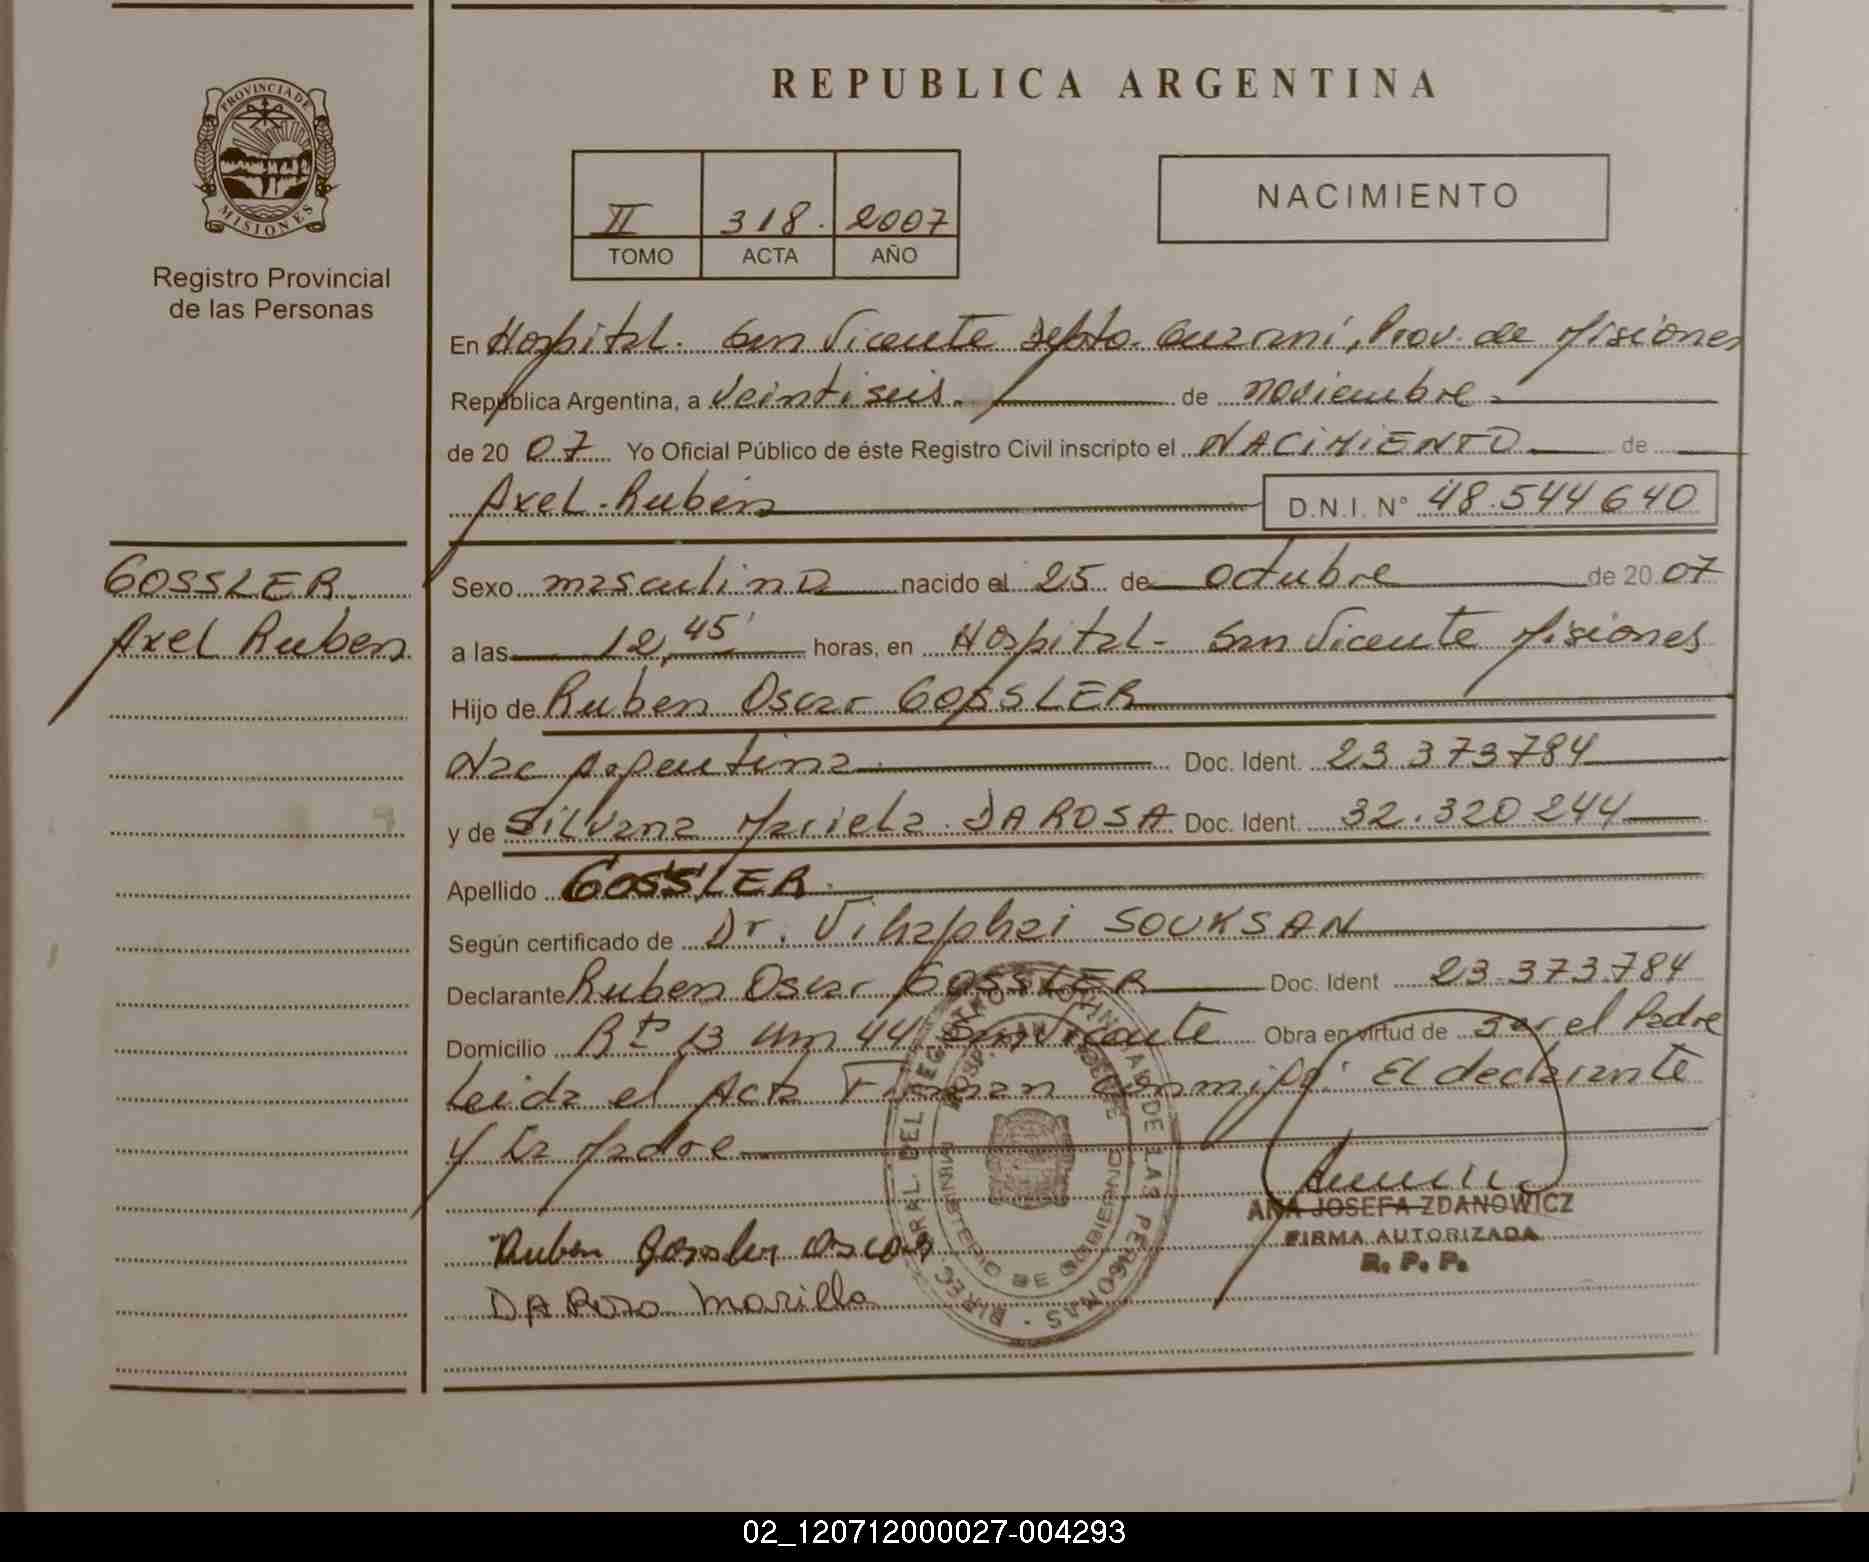 REPUBLICA ARGENTINA
PROVINCIA DE
MISIONES
Registro Provincial
de las Personas
II 318. 2007
TOMO ACTA AÑO
NACIMIENTO
En Hospital. San Vicente Depto. Guarani, Prov. de Misiones
República Argentina, a veintiseis de noviembre
de 20 07 Yo Oficial Público de éste Registro Civil inscripto el NACIMIENTO de
Axel Ruben D.N.I. N° 48.544640
GOSSLER
Axel Ruben
Sexo masculino nacido el 25 de octubre de 20 07
a las 12,45' horas, en Hospital - San Vicente Misiones
Hijo de Ruben Oscar GOSSLER
Nac Argentina Doc. Ident. 23 373 784
y de Silvana Mariela DA ROSA Doc. Ident. 32.320 244
Apellido GOSSLER
Según certificado de Dr. Vihaphai SOUKSAN
Declarante Ruben Oscar GOSSLER Doc. Ident 23.373.784
Domicilio Rta 13 Km 44 San Vicente Obra en virtud de ser el Padre
Leida el Acta Firman conmigo: El declarante
y la Madre
Ruben Gossler Oscar
DA Rosa Mariela
ANA JOSEFA ZDANOWICZ
FIRMA AUTORIZADA
R. P. P.
MINISTERIO DE GOBIERNO
02_120712000027-004293